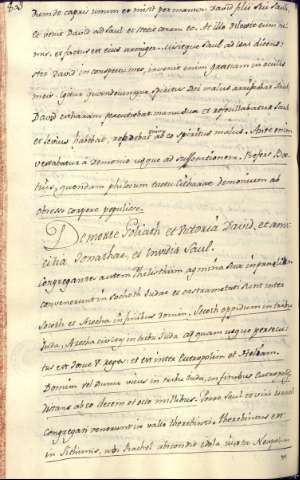 dum de capris unum et misit per manum David filii sui Saul,
et venit David ad Saul et stetit coram eo. At ille dilexit eum ni-
mis, et factus est eius armiger. Misitque Saul ad Isai dicens:
stet David in conspectu meo, invenit enim gratiam in oculis
meis. Igitur quandocumque spiritus Dei malus arripiebat Saul
David citharam percutiebat manu sua et refocillabatur Saul
et levius habebat, recedebat enim ab eo spiritus malus. Ante enim
vexabatur a Demonio usque ad suffocationem. Refert Boe-
tius, quondam philosofum cuiusdam citharae demonium ab
obsesso corpore pepulisse.
De morte Goliath et victoria David, et ami-
citia Jonathae, et invidia Saul.
Congregantes autem Philisthiim agmina sua in praelium
convenerunt in Socchoth Judae et castrametati sunt inter
Socoth et Azecha in finibus Domim. Socoth oppidum in tribu
Juda, Azecha civitas in tribu Juda ad quam usque persecu-
tus est Josue V reges et est inter Eleutropolim et Heliam.
Domim vel Dumia vicus in tribu Juda, in finibus Eleutropolis
distans ab eo decem et octo millibus. Porro Saul et viri Israel
congregati venerunt in vallem therebinthi. Therebinthus est
in Sichimis, ubi Jacob abscondit idola iuxta Neapolim